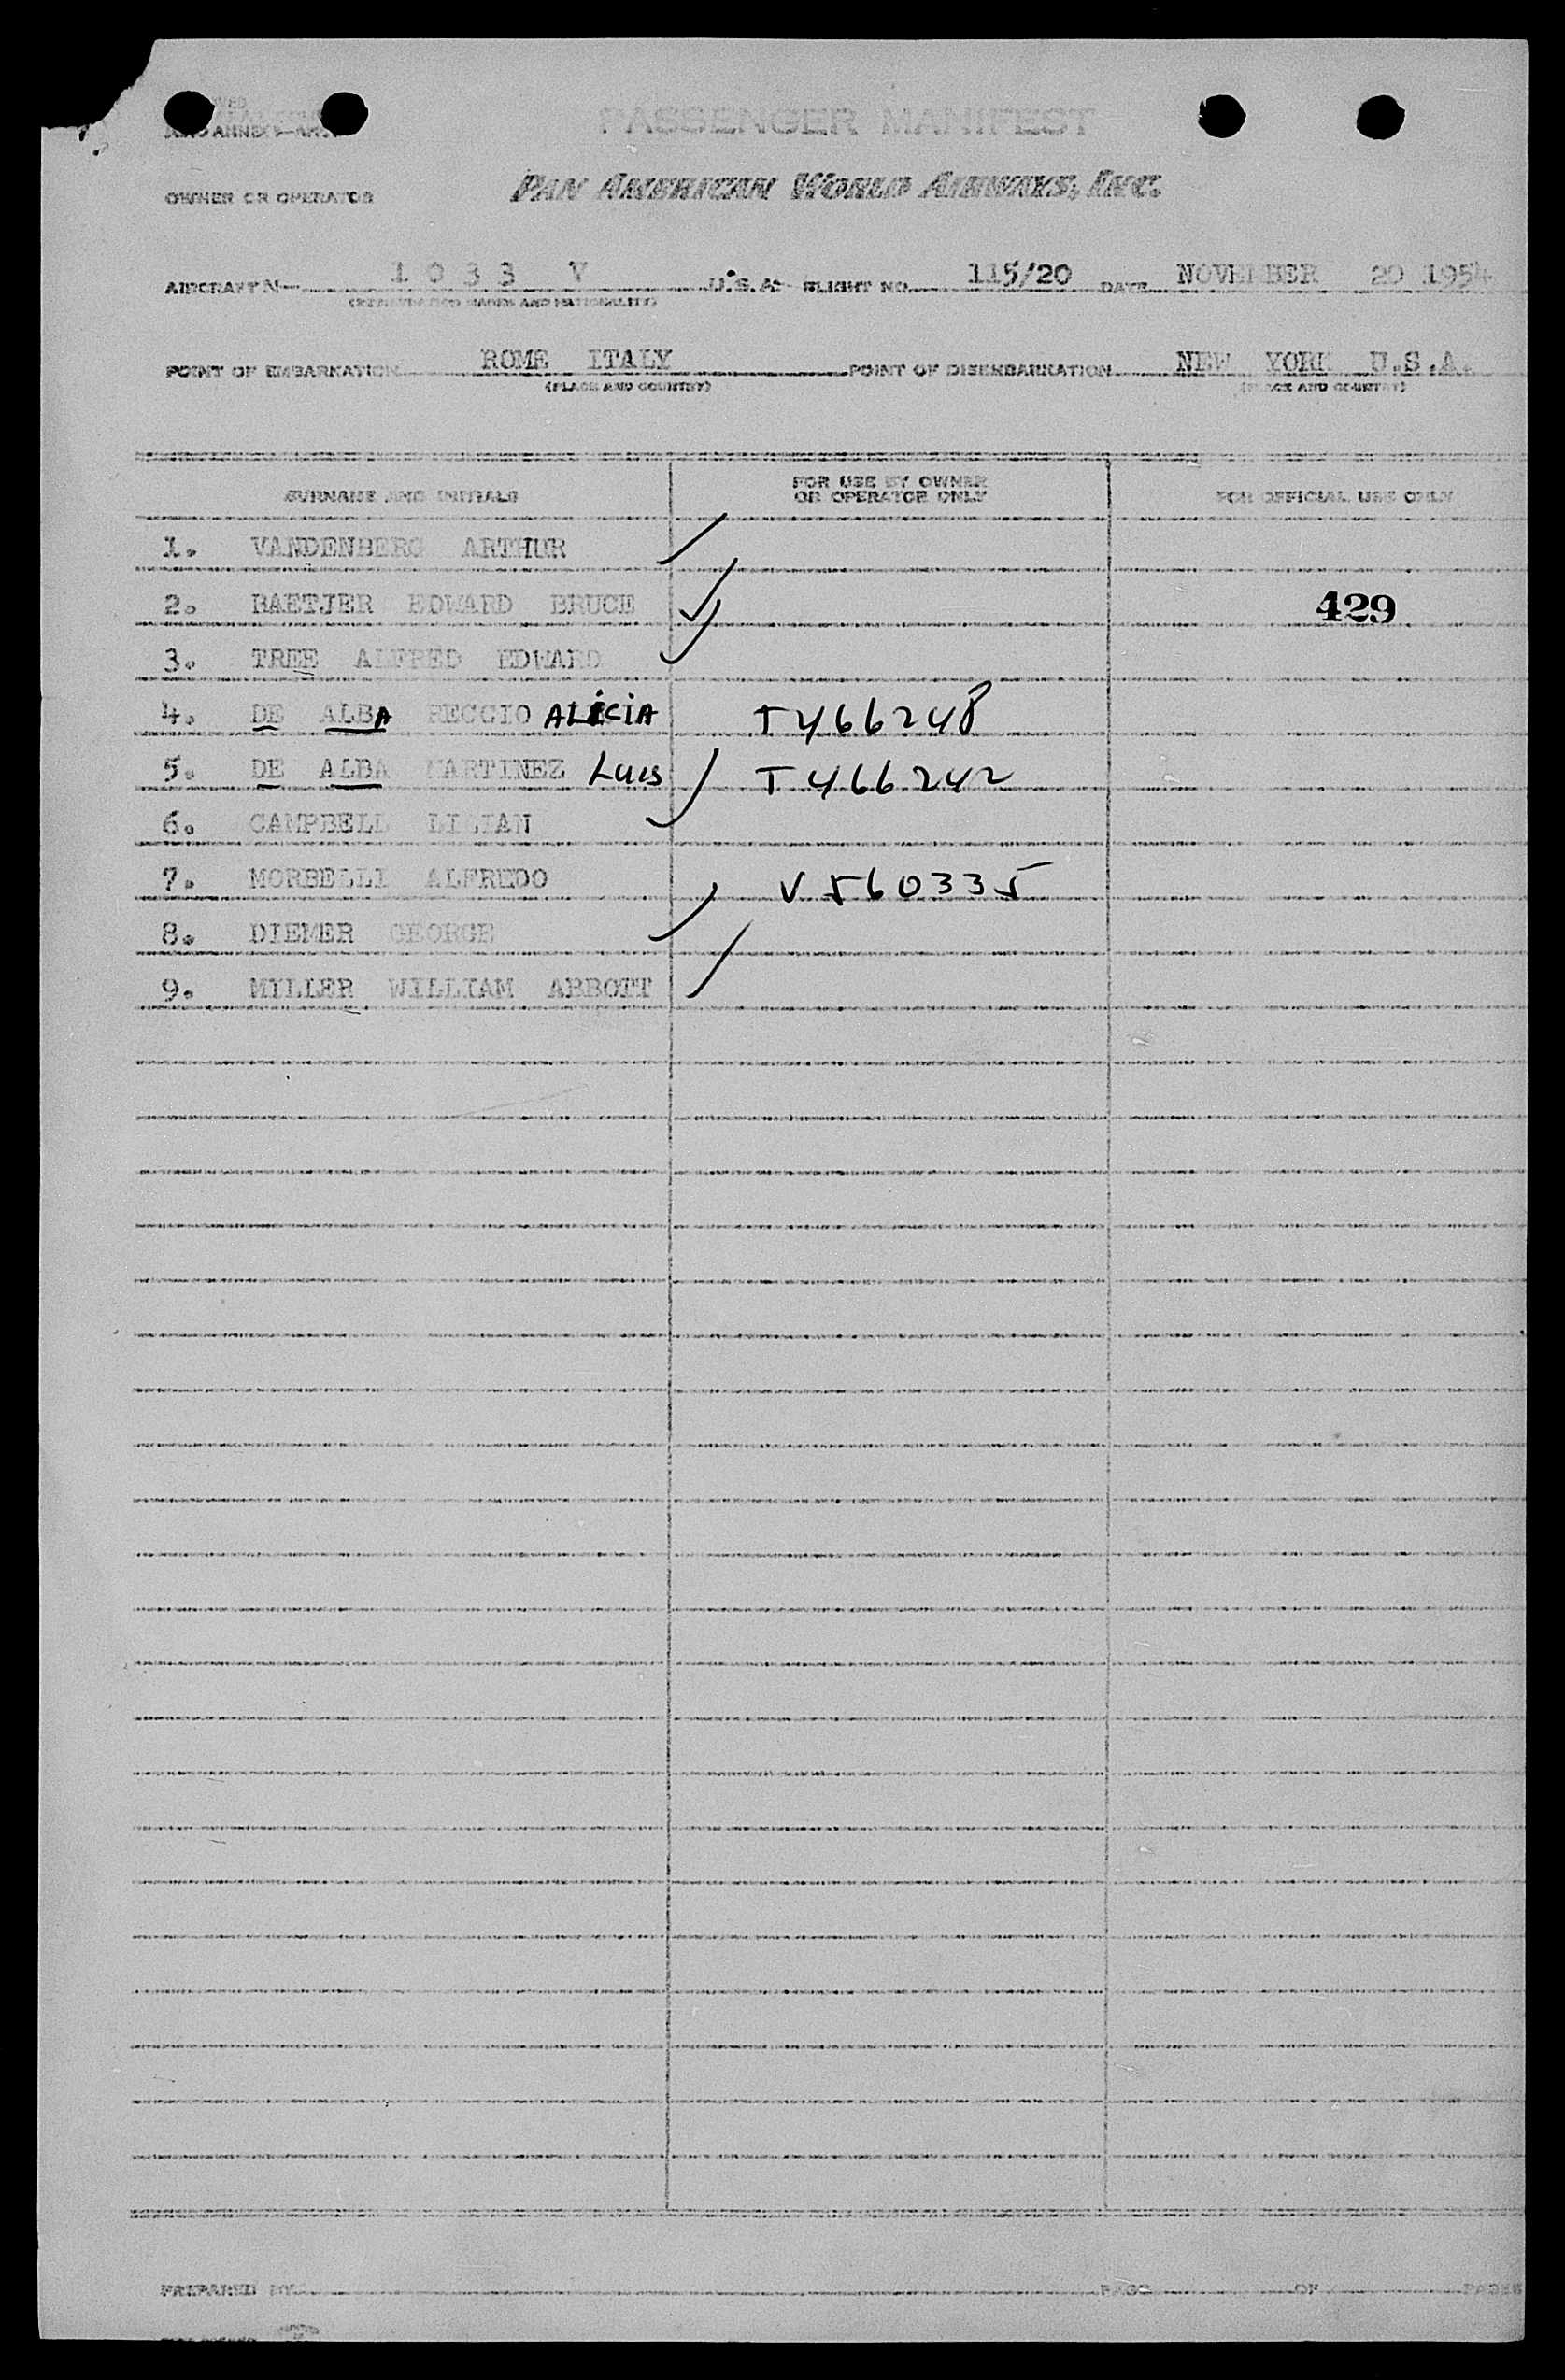 PASSENGER MANIFEST
OWNER OR OPERATOR PAN AMERICAN WORLD AIRWAYS, INC.
AIRCRAFT N- 1 0 3 3 V U.S.A. FLIGHT NO. 115/20 DATE NOVEMBER 20 1954
(REGISTRATION MARKS AND NATIONALITY)
POINT OF EMBARKATION ROME ITALY POINT OF DISEMBARKATION NEW YORK U.S.A.
(PLACE AND COUNTRY) (PLACE AND COUNTRY)
SURNAME AND INITIALS FOR USE BY OWNER OR OPERATOR ONLY FOR OFFICIAL USE ONLY
1. VANDENBERG ARTHUR
2. BAETJER EDWARD BRUCE 429
3. TREE ALFRED EDWARD
4. DE ALBA ALICIA T466248
5. DE ALBA MARTINEZ Luis T466242
6. CAMPBELL LILIAN
7. MORBELLI ALFREDO V560335
8. DIEMER GEORGE
9. MILLER WILLIAM ABBOTT
PREPARED BY PAGE OF PAGES